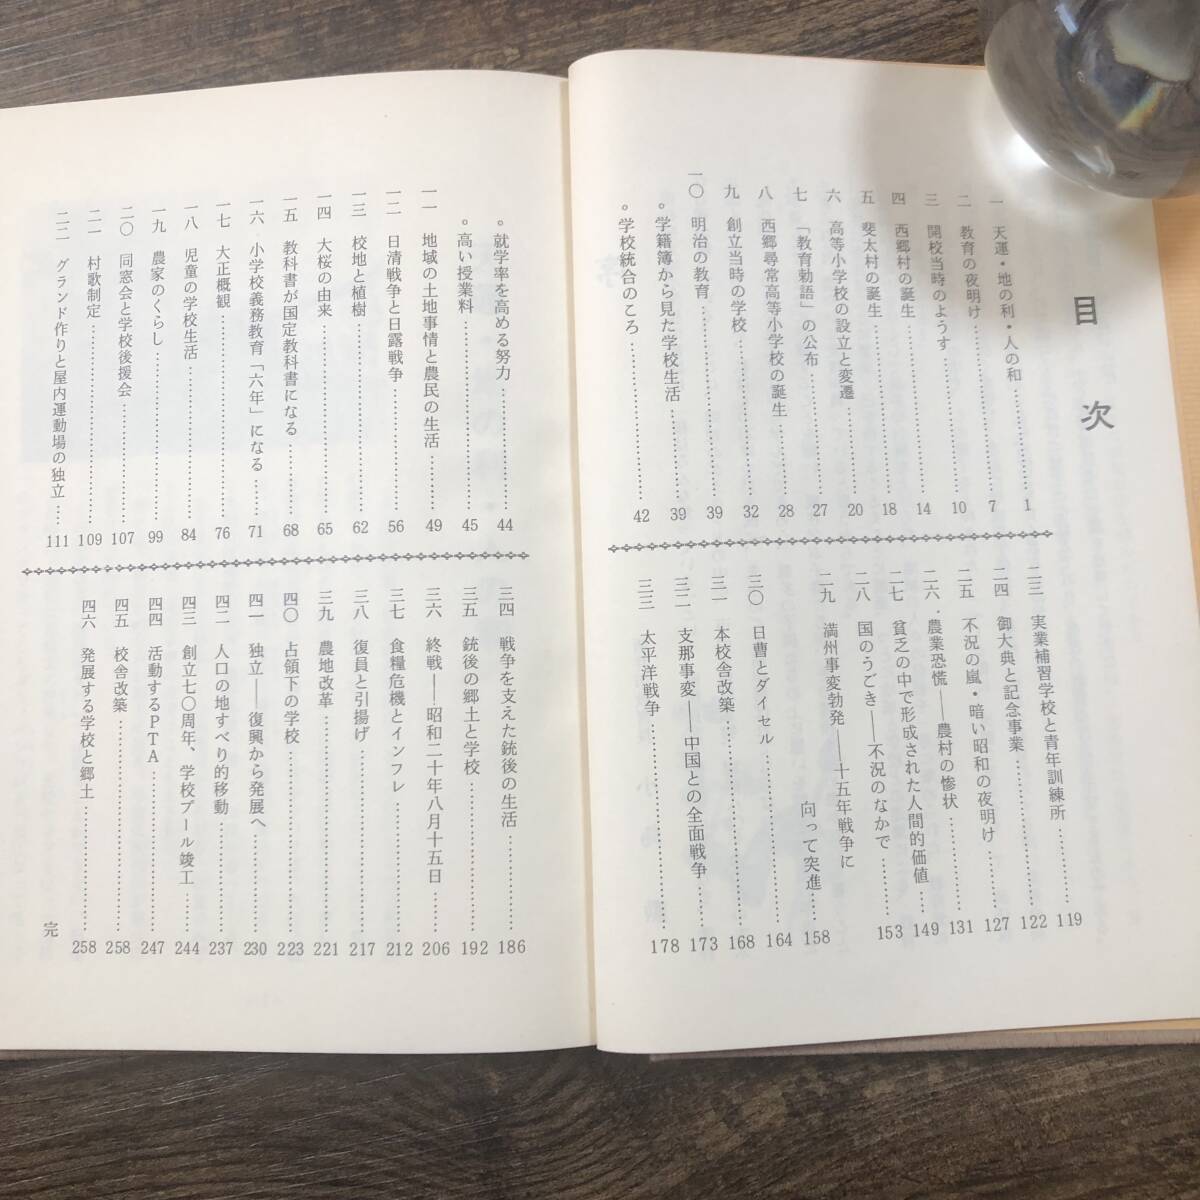 目次
一 天運・地の利・人の和……1
二 教育の夜明け……7
三 開校当時のようす……10
四 西郷村の誕生……14
五 斐太村の誕生……18
六 高等小学校の設立と変遷……20
七 「教育勅語」の公布……27
八 西郷尋常高等小学校の誕生……28
九 創立当時の学校……32
一〇 明治の教育……39
。学籍簿から見た学校生活……39
。学校統合のころ……42
二三 実業補習学校と青年訓練所……119
二四 御大典と記念事業……122
二五 不況の嵐・暗い昭和の夜明け……127
二六・農業恐慌――農村の惨状……131
二七 貧乏の中で形成された人間的価値……149
二八 国のうごき――不況のなかで……153
二九 満州事変勃発――十五年戦争に
向って突進……158
三〇 日曹とダイセル……164
三一 本校舎改築……168
三二 支那事変――中国との全面戦争……173
三三 太平洋戦争……178
。就学率を高める努力……44
。高い授業料……45
一一 地域の土地事情と農民の生活……49
一二 日清戦争と日露戦争……56
一三 校地と植樹……62
一四 大桜の由来……65
一五 教科書が国定教科書になる……68
一六 小学校義務教育「六年」になる……71
一七 大正概観……76
一八 児童の学校生活……84
一九 農家のくらし……99
二〇 同窓会と学校後援会……107
二一 村歌制定……109
二二 グランド作りと屋内運動場の独立……111
三四 戦争を支えた銃後の生活……186
三五 銃後の郷土と学校……192
三六 終戦――昭和二十年八月十五日……206
三七 食糧危機とインフレ……212
三八 復員と引揚げ……217
三九 農地改革……221
四〇 占領下の学校……223
四一 独立――復興から発展へ……230
四二 人口の地すべり的移動……237
四三 創立七〇周年、学校プール竣工……244
四四 活動するPTA……247
四五 校舎改築……258
四六 発展する学校と郷土……258
完